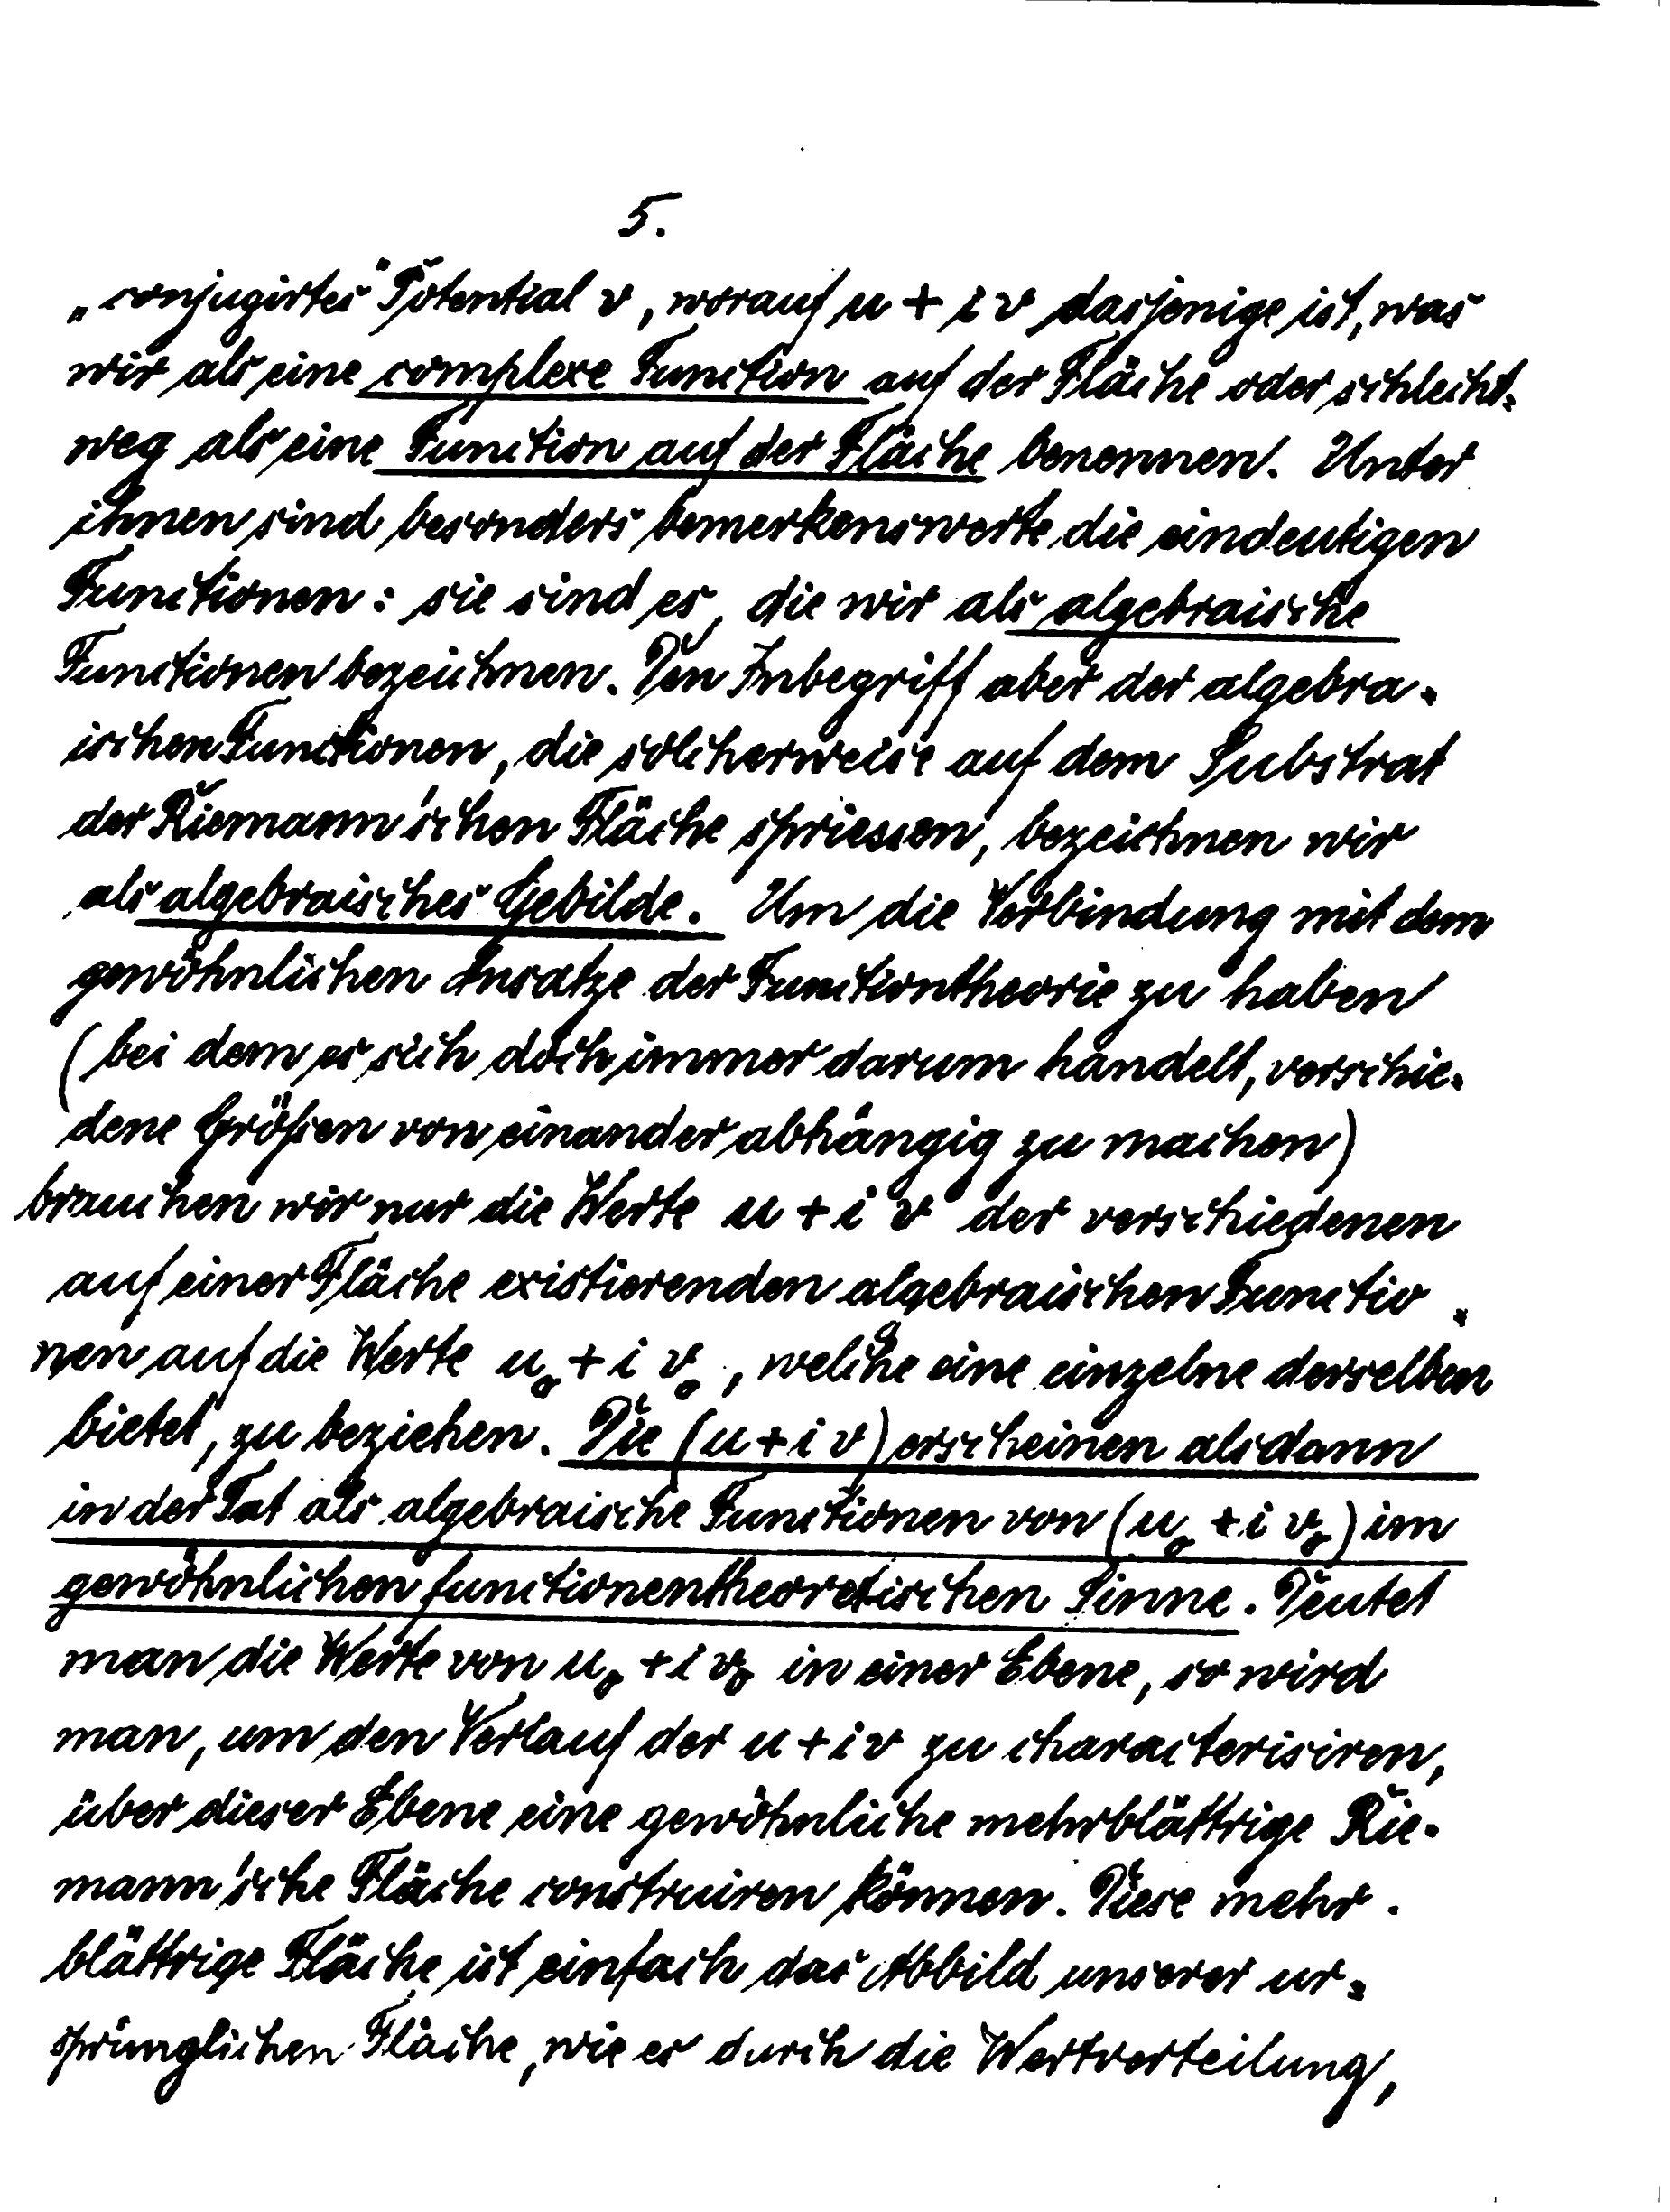 5.
„conjugirtes" Potential v, worauf u + i v dasjenige ist, was
wir als eine complexe Function auf der Fläche oder schlecht-
weg als eine Function auf der Fläche benennen. Unter
ihnen sind besonders bemerkenswerte die eindeutigen
Functionen: sie sind es, die wir als algebraische
Functionen bezeichnen. Den Inbegriff aber der algebra-
ischen Functionen, die solcherweise auf dem Substrat
der Riemann'schen Fläche spriessen, bezeichnen wir
als algebraisches Gebilde. Um die Verbindung mit dem
gewöhnlichen Ansatze der Functiontheorie zu haben
(bei dem es sich doch immer darum handelt, verschie-
dene Größen von einander abhängig zu machen)
brauchen wir nur die Werte u + i v der verschiedenen
auf einer Fläche existierenden algebraischen Functio-
nen auf die Werte u₀ + i v₀, welche eine einzelne derselben
bietet, zu beziehen. Die (u + i v) erscheinen alsdann
in der Tat als algebraische Functionen von (u₀ + i v₀) im
gewöhnlichen functionentheoretischen Sinne. Deutet
man die Werte von u₀ + i v₀ in einer Ebene, so wird
man, um den Verlauf der u + i v zu characterisiren,
über dieser Ebene eine gewöhnliche mehrblättrige Rie-
mann'sche Fläche construiren können. Diese mehr-
blättrige Fläche ist einfach das Abbild unserer ur-
sprünglichen Fläche, wie es durch die Wertverteilung,